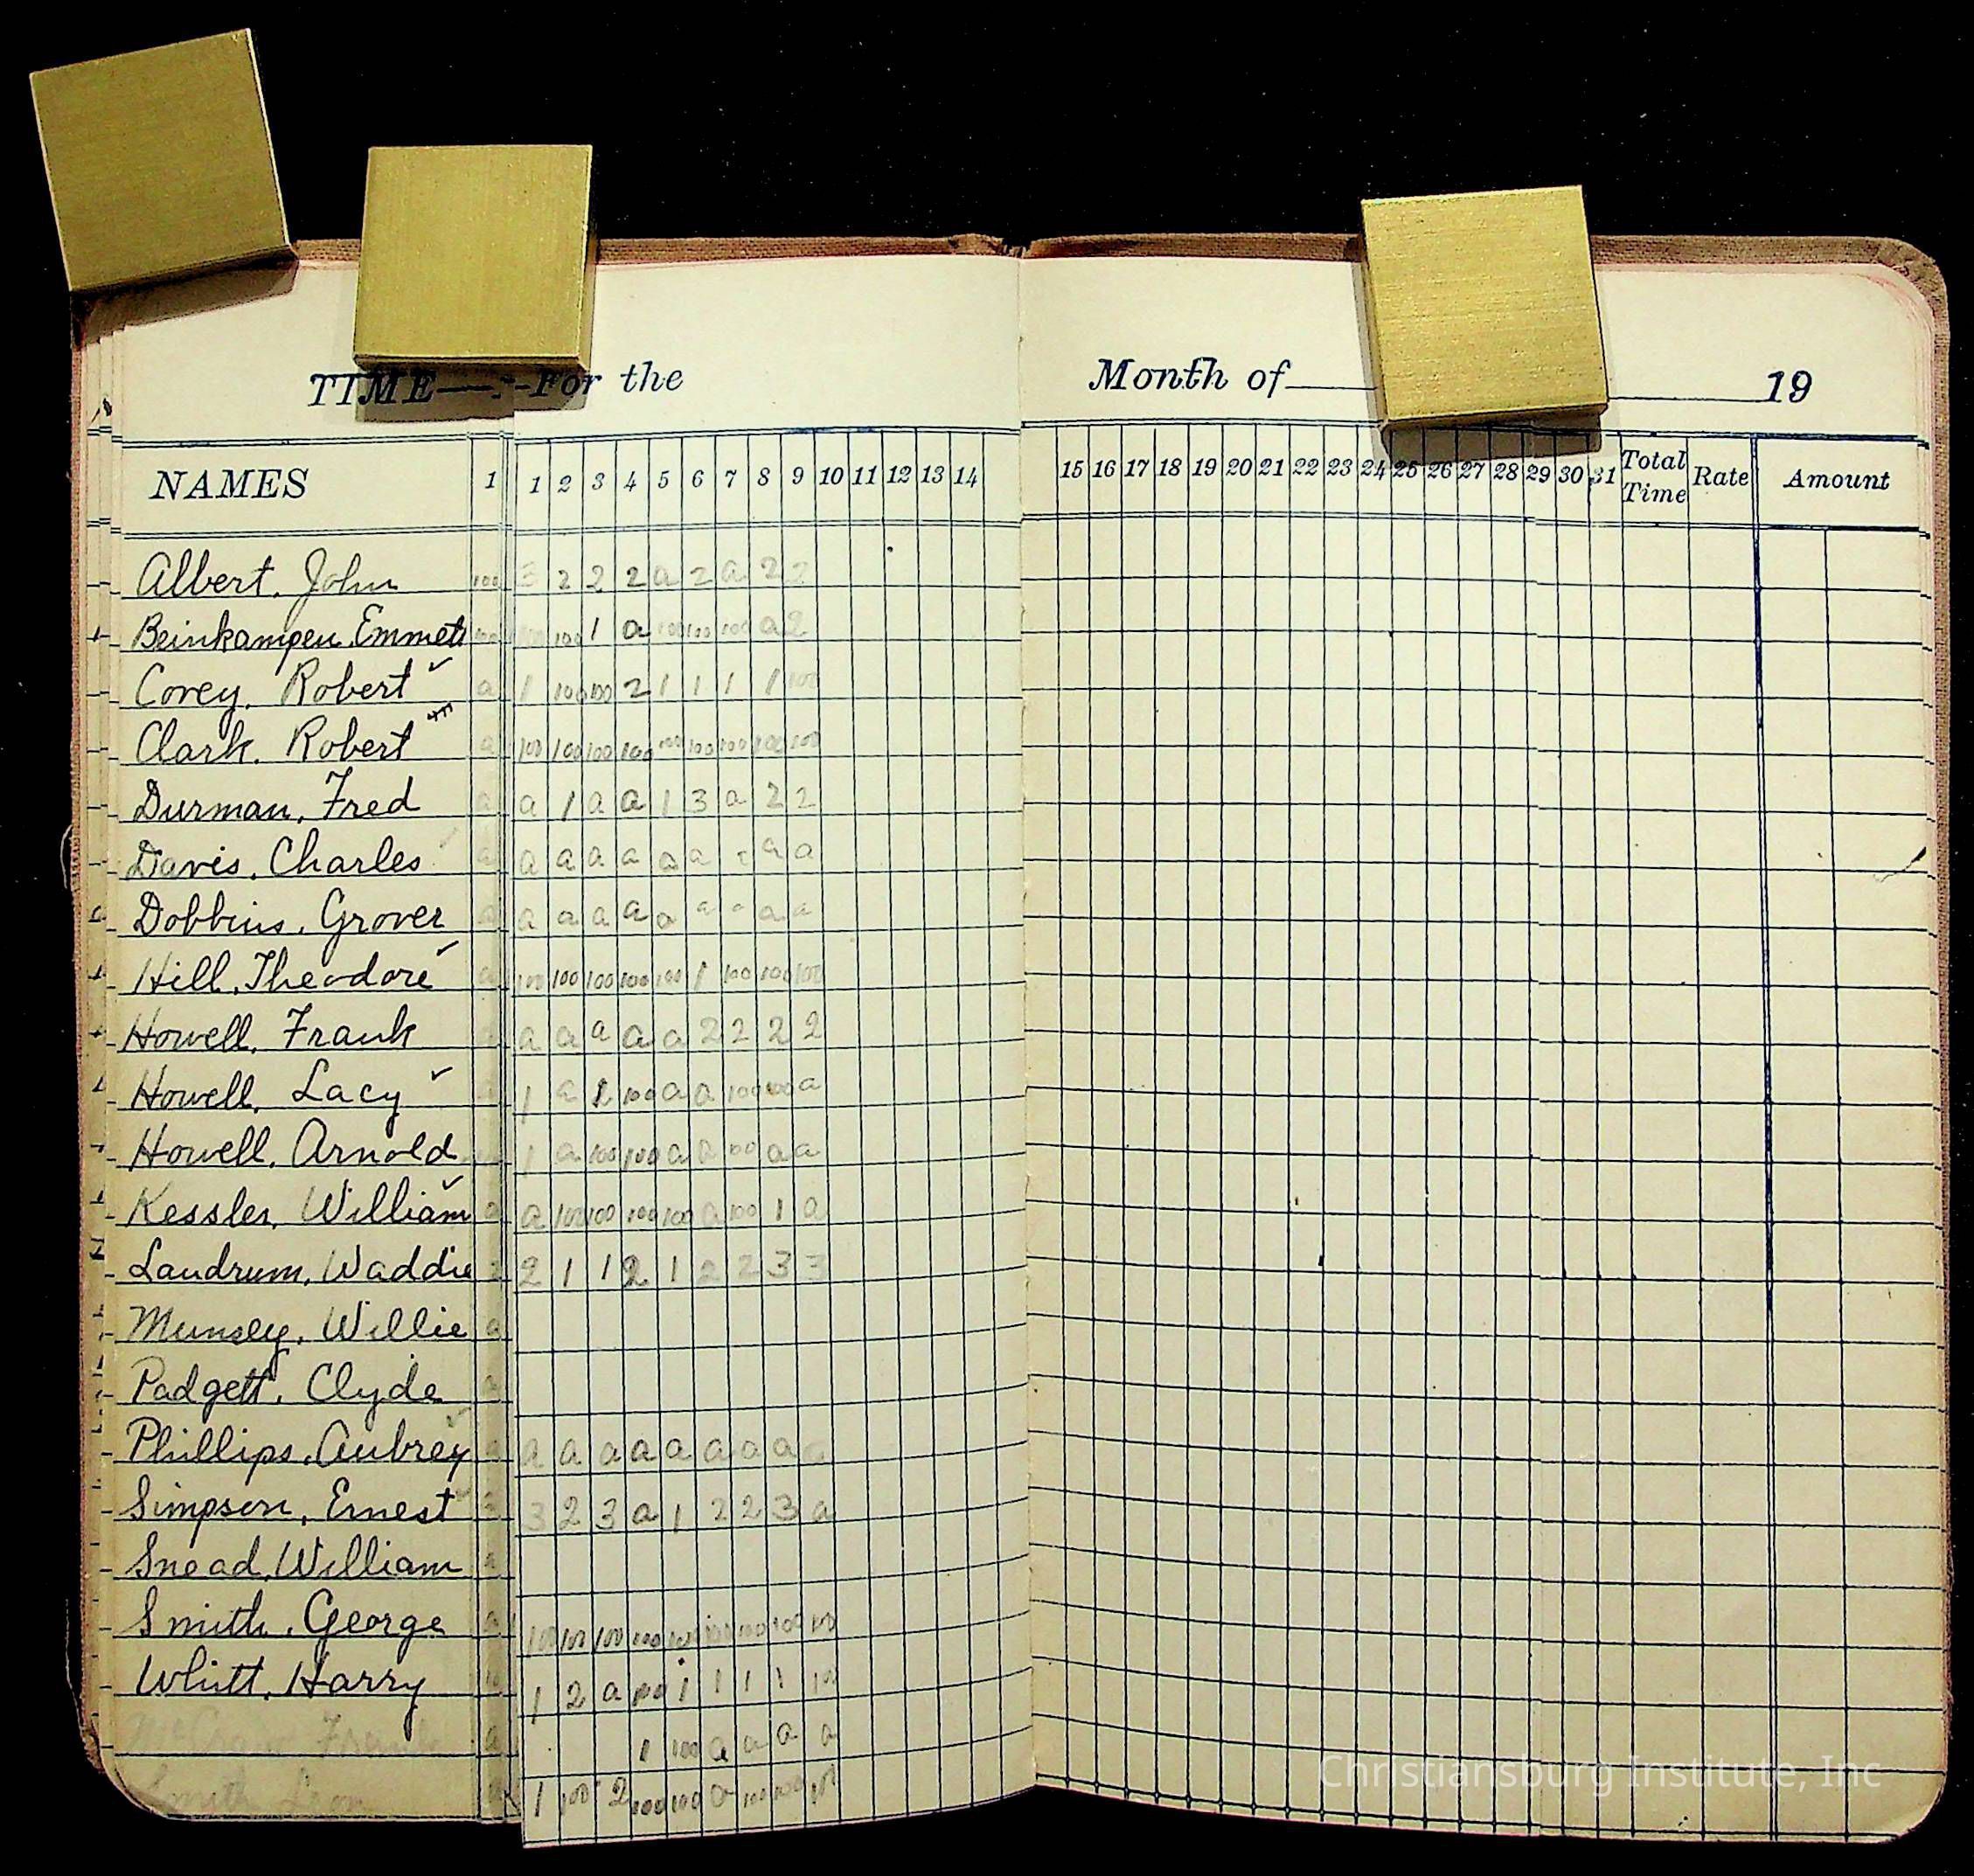 TIME—For the Month of 19
NAMES 1 1 2 3 4 5 6 7 8 9 10 11 12 13 14 15 16 17 18 19 20 21 22 23 24 25 26 27 28 29 30 31 Total Time Rate Amount
Albert, John 100 3 2 2 2 a 2 a 2 2
Beinkampen Emmett 100 1 a 100 100 100 a 2
Covey, Robert ✓ a 1 100 100 2 1 1 1 1 100
Clark, Robert a 100 100 100 100 100 100 100 100 100
Durman, Fred a a 1 a a 1 3 a 2 2
Davis, Charles a a a a a a a a a
Dobbins, Grover a a a a a a a a a a
Hill, Theodore ✓ a 100 100 100 100 100 1 100 100 100
Howell, Frank a a a a a a 2 2 2 2
Howell, Lacy ✓ 1 a 100 a a 100 100 a
Howell, Arnold 1 a 100 100 a a 100 a a
Kessler, William ✓ a a 100 100 100 100 a 100 1 a
Landrum, Waddie 2 1 1 2 1 2 2 3 3
Munsey, Willie a
Padgett, Clyde a
Phillips, Aubrey ✓ a a a a a a a a a
Simpson, Ernest 3 3 2 3 a 1 2 2 3 a
Snead, William a
Smith, George a 100 100 100 100 100 100 100 100 100
Whitt, Harry 1 2 a 100 1 1 1 1 100
Frank a 1 100 a a a a
Smith Leon 1 100 2 100 100 a 100 100 100
Christiansburg Institute, Inc